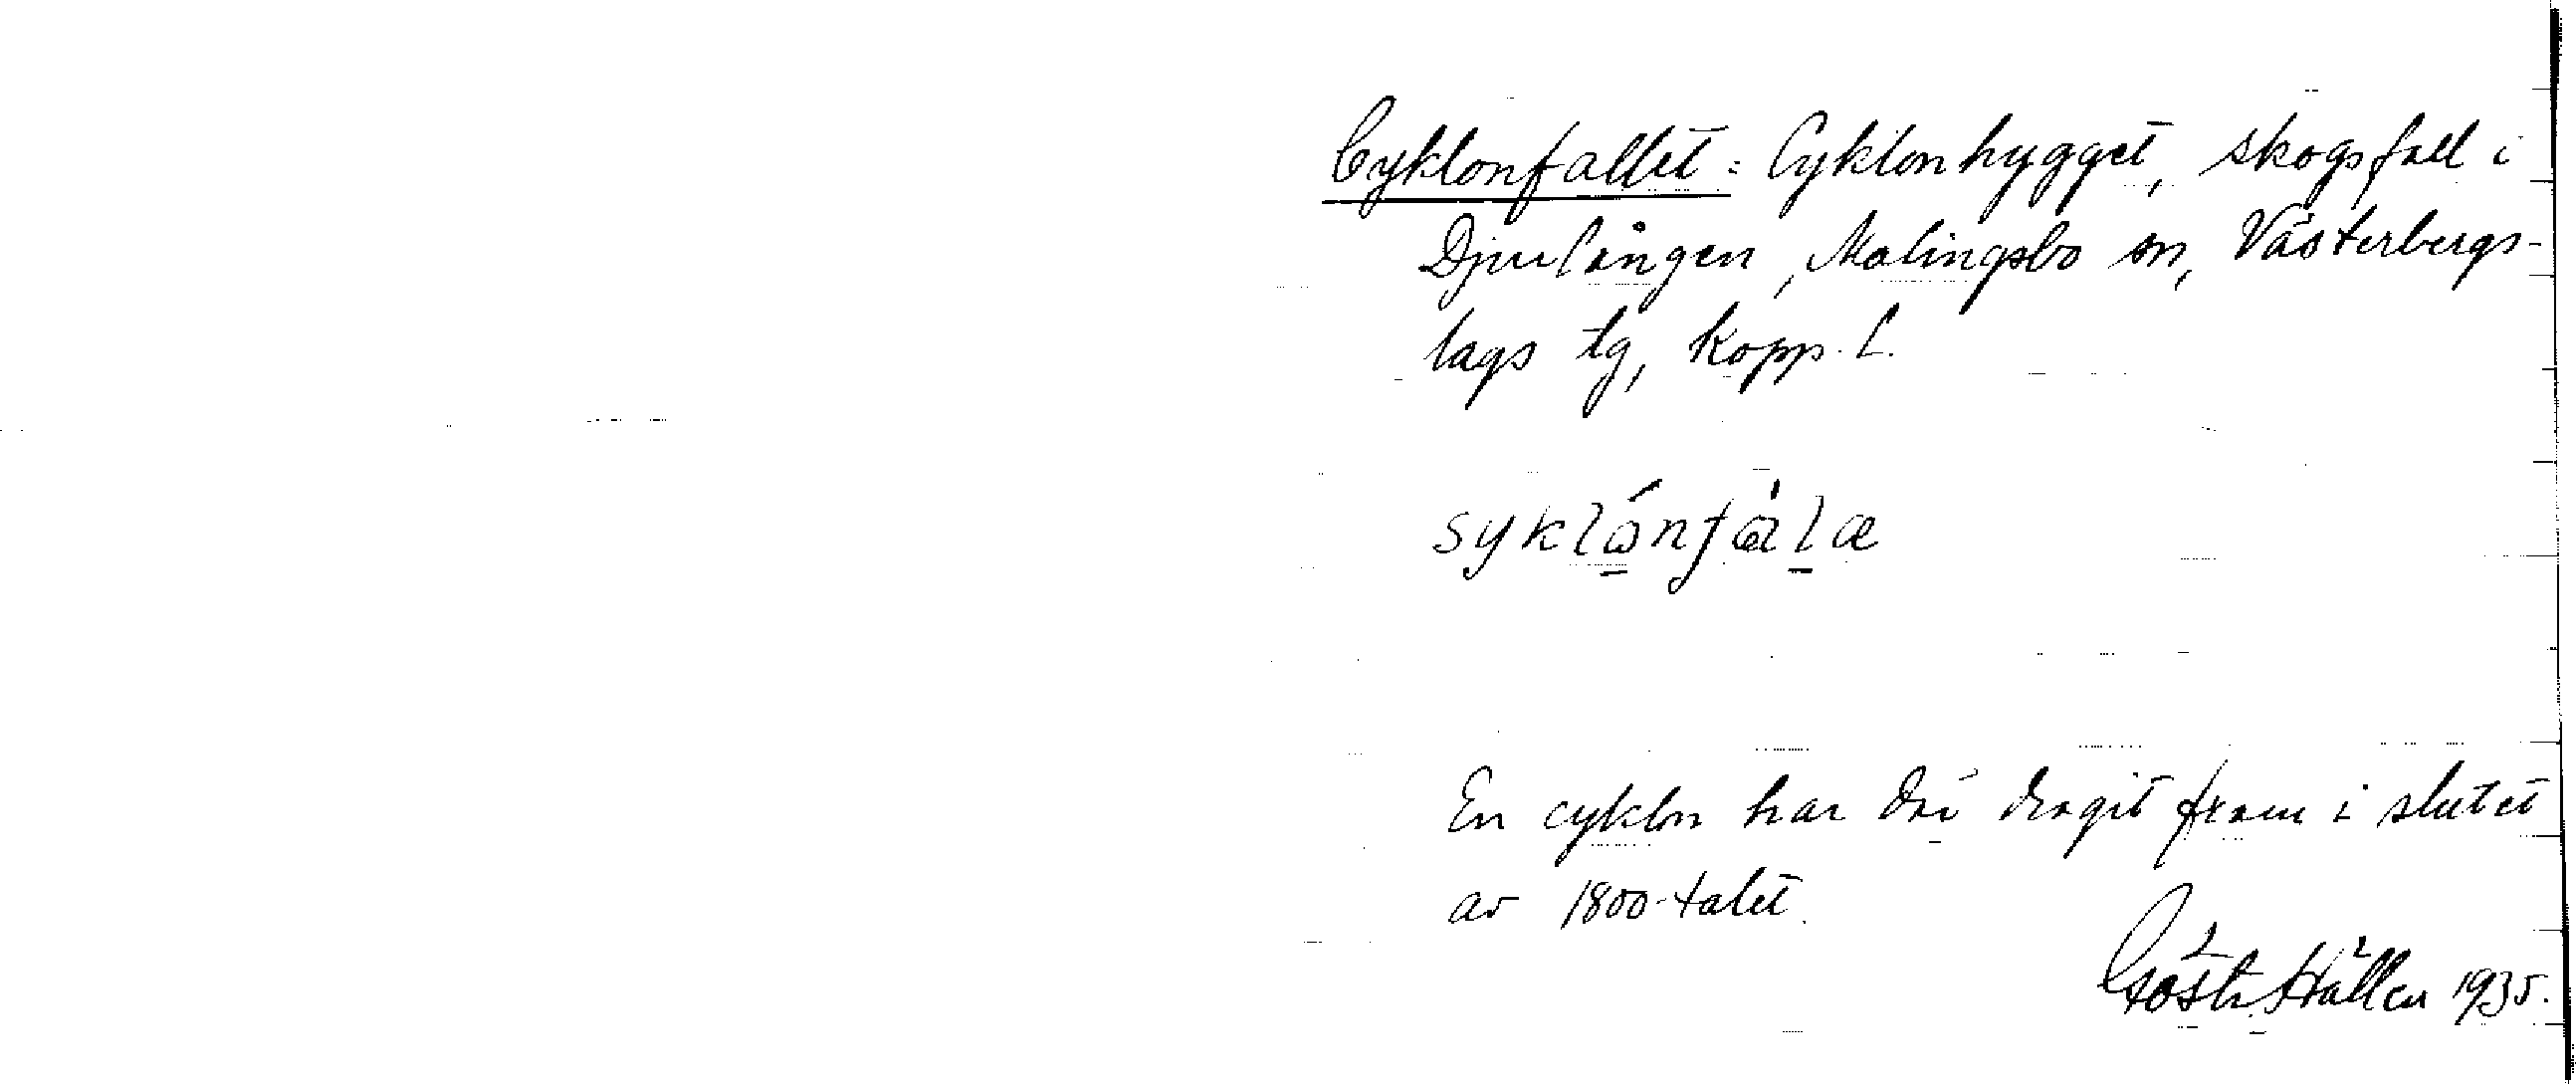 Cyklonfallet = Cyklonhygget, skogsfall i
Djurlången, Malingsbo sn, Västerbergs-
lags tg, Kopp. l.
syklɷ́nfàlæ
En cyklon har där dragit fram i slutet
av 1800-talet.
Gösta Hällén 1935.